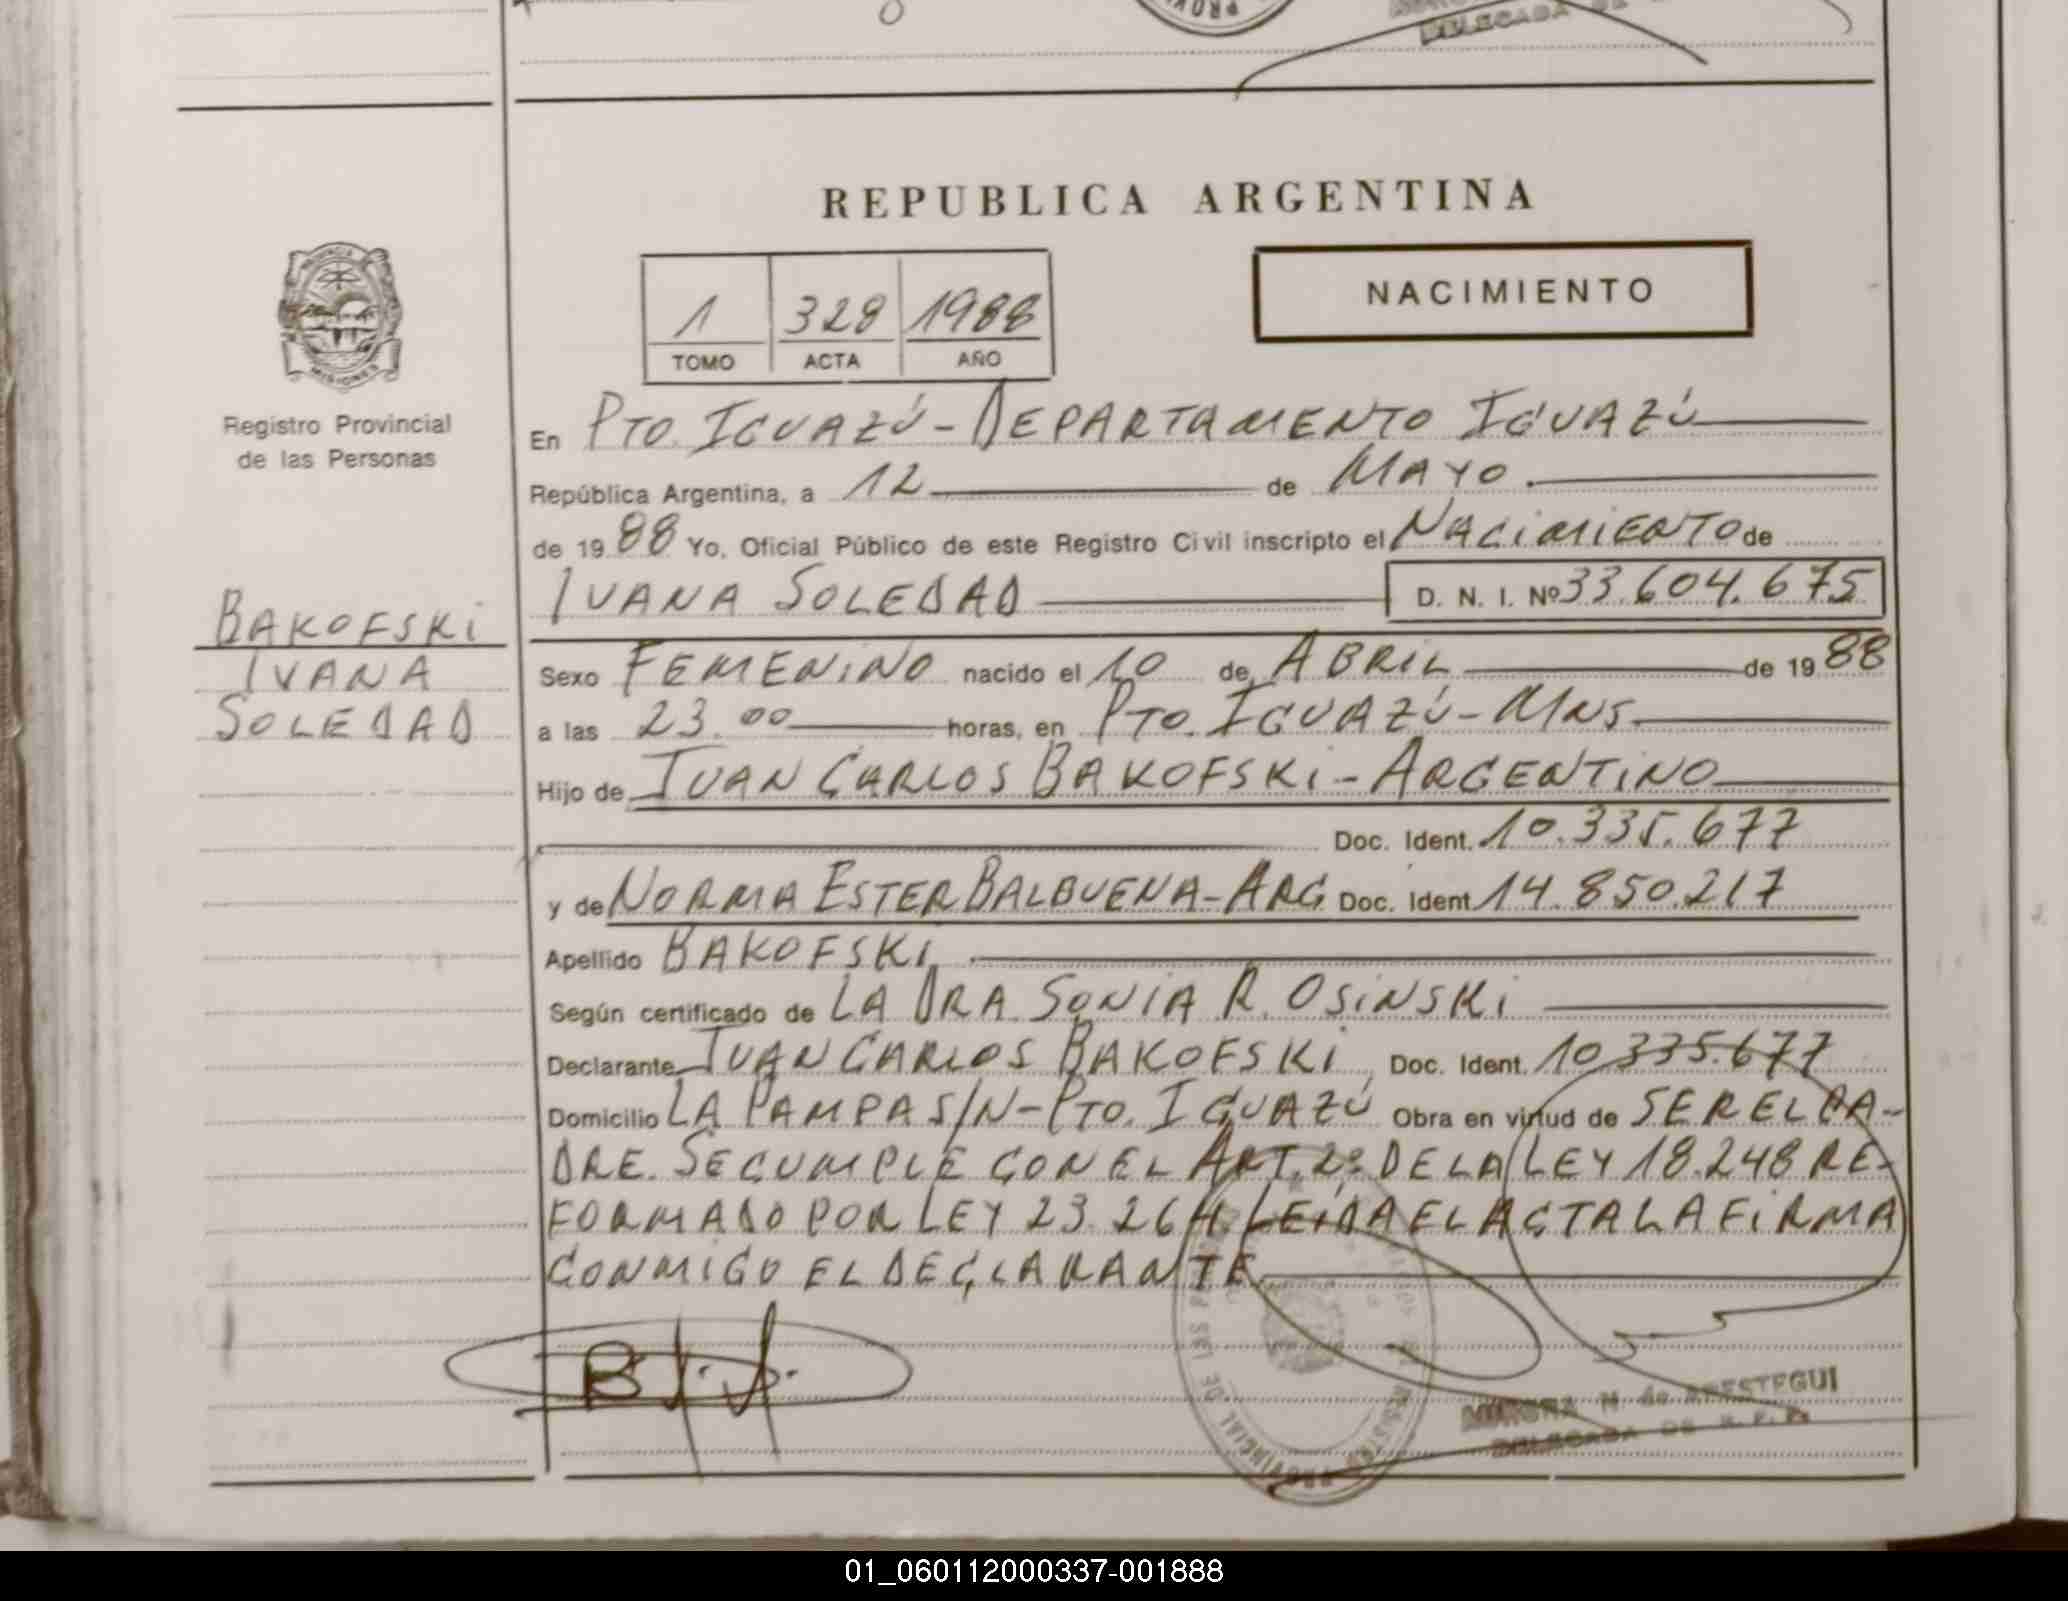 DELEGADA DE
REPUBLICA ARGENTINA
NACIMIENTO
1 328 1988
TOMO ACTA AÑO
PROVINCIA
MISIONES
Registro Provincial
de las Personas
BAKOFSKI
IVANA
SOLEDAD
En PTO. IGUAZÚ - DEPARTAMENTO IGUAZÚ
República Argentina, a 12 de MAYO.
de 1988 Yo, Oficial Público de este Registro Civil inscripto el NACIMIENTO de
IVANA SOLEDAD D. N. I. Nº 33.604.675
Sexo FEMENINO nacido el 10 de ABRIL de 1988
a las 23.00 horas, en PTO. IGUAZÚ - MNS.
Hijo de JUAN CARLOS BAKOFSKI - ARGENTINO
Doc. Ident. 10.335.677
y de NORMA ESTER BALBUENA - ARG. Doc. Ident 14.850.217
Apellido BAKOFSKI,
Según certificado de LA DRA. SONIA R. OSINSKI
Declarante JUAN CARLOS BAKOFSKI, Doc. Ident. 10.335.677
Domicilio LA PAMPA S/N - PTO. IGUAZÚ Obra en virtud de SER EL PA-
DRE. SE CUMPLE CON EL ART. 2º DE LA LEY 18.248 RE-
FORMADO POR LEY 23.264. LEIDA EL ACTA LA FIRMA
CONMIGO EL DECLARANTE
B J. A.
REGISTRO PROVINCIAL DE LAS
N. de ARESTEGUI
DELEGADA DE R. P. P.
01_060112000337-001888